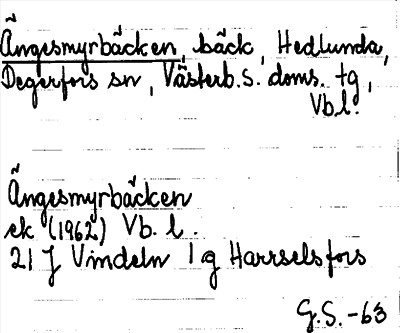 Ängesmyrbäcken, bäck, Hedlunda,
Degerfors sn, Västerb.s. doms. tg,
Vb.l.
Ängesmyrbäcken
ek (1962) Vb. l.
21 J Vindeln 1 g Harrselsfors
G.S.-63